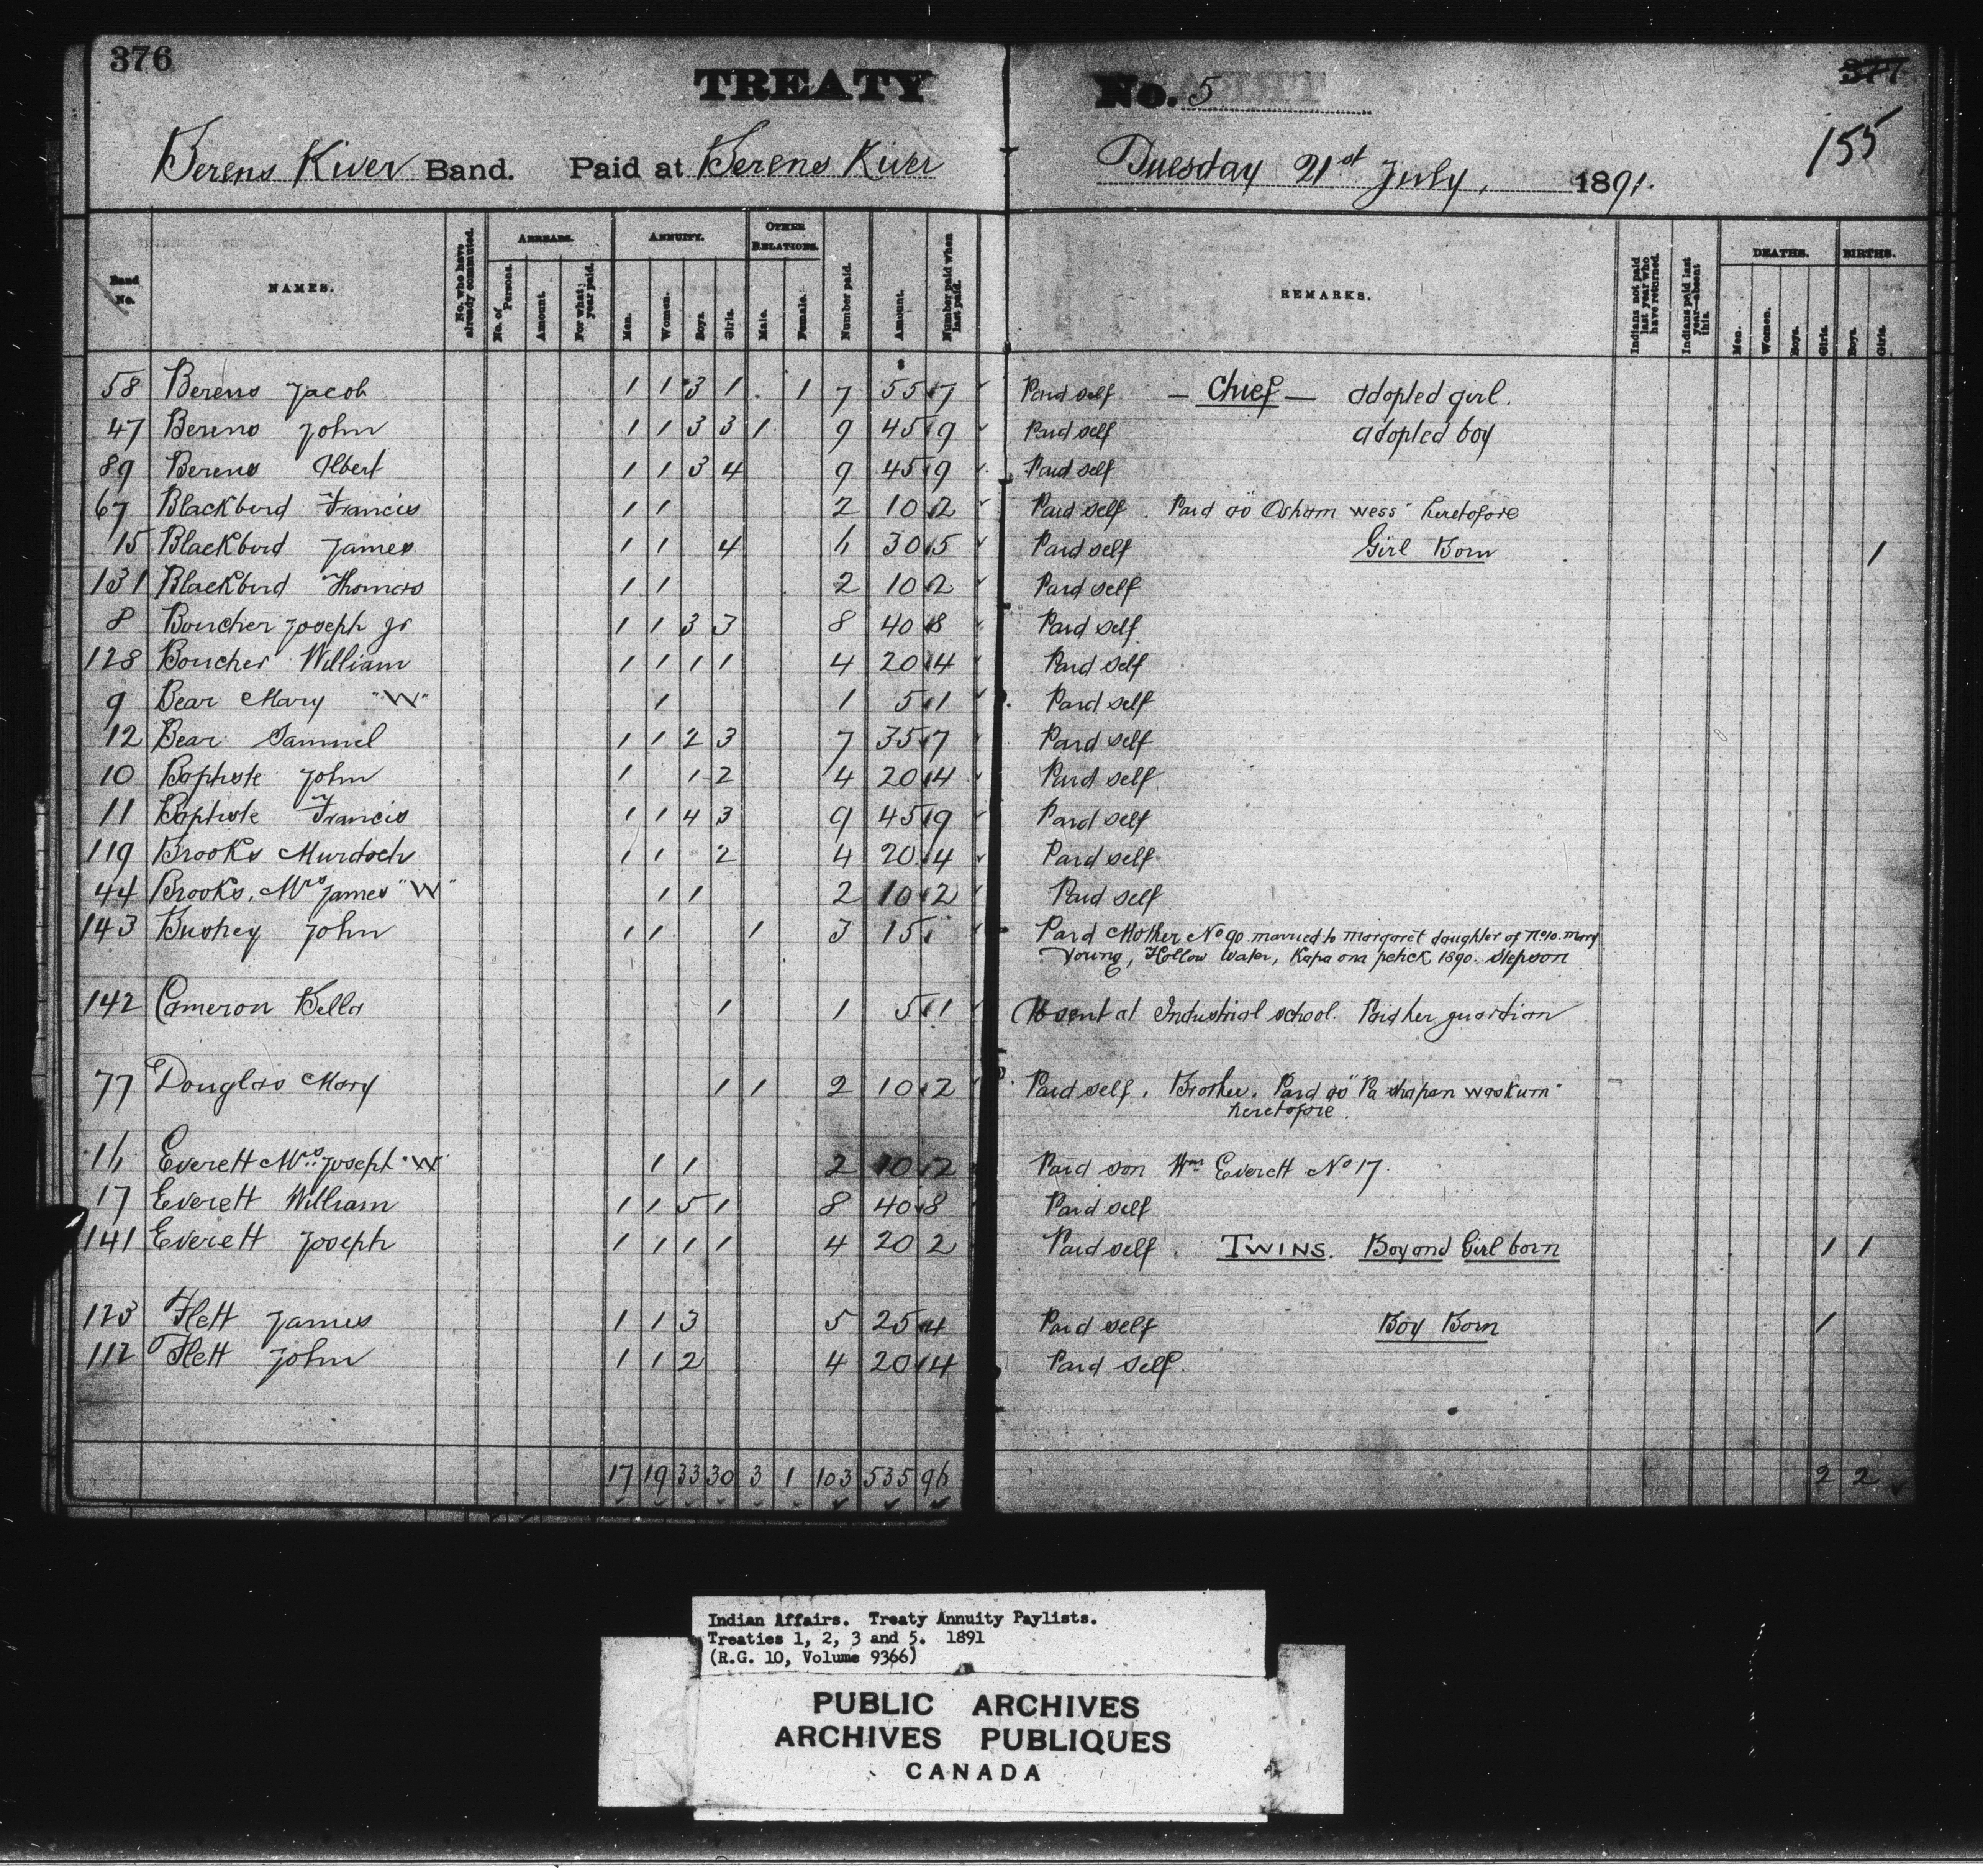 376
TREATY No. 5
377
155
Berens River Band. Paid at Berens River Tuesday 21st July, 1891.
Band No. NAMES. No. who have already commuted. ARREARS. No. of Persons. Amount. For what year paid. ANNUITY. Men. Women. Boys. Girls. OTHER RELATIONS. Male. Female. Number paid. Amount. Number paid when last paid. REMARKS. Indians not paid last year who have returned. Indians paid last year—absent this. DEATHS. Men. Women. Boys. Girls. BIRTHS. Boys. Girls.
58 Berens Jacob 1 1 3 1 1 7 55 7 Paid self — Chief — adopted girl.
47 Berens John 1 1 3 3 1 9 45 9 Paid self adopted boy
89 Berens Albert 1 1 3 4 9 45 9 Paid self
67 Blackbird Francis 1 1 2 10 2 Paid self. Paid as "Osham wess" heretofore
15 Blackbird James 1 1 4 6 30 5 Paid self Girl Born 1
131 Blackbird Thomas 1 1 2 10 2 Paid self
8 Boucher Joseph jr 1 1 3 3 8 40 8 Paid self
128 Boucher William 1 1 1 1 4 20 4 Paid self
9 Bear Mary "W" 1 1 5 1 Paid self
12 Bear Samuel 1 1 2 3 7 35 7 Paid self
10 Baptiste John 1 1 2 4 20 4 Paid self
11 Baptiste Francis 1 1 4 3 9 45 9 Paid self
119 Brooks Murdoch 1 1 2 4 20 4 Paid self
44 Brooks, Mrs James "W" 1 1 2 10 2 Paid self
143 Bushey John 1 1 1 3 15 Paid Mother No 90. married to Margaret daughter of No 10. Mary
Young, Hollow Water, Kapa ona petick 1890. stepson
142 Cameron Bella 1 1 5 1 Absent at Industrial school. Paid her guardian
77 Douglas Mary 1 1 2 10 2 Paid self. Brother. Paid as "Pa shapan waskum"
heretofore.
16 Everett Mrs Joseph "W" 1 1 2 10 2 Paid son Wm Everett No 17.
17 Everett William 1 1 5 1 8 40 8 Paid self
141 Everett Joseph 1 1 1 1 4 20 2 Paid self. TWINS. Boy and Girl born 1 1
123 Flett James 1 1 3 5 25 4 Paid self Boy Born 1
112 Flett John 1 1 2 4 20 4 Paid self.
17 19 33 30 3 1 103 535 96 2 2
Indian Affairs. Treaty Annuity Paylists.
Treaties 1, 2, 3 and 5. 1891
(R.G. 10, Volume 9366)
PUBLIC ARCHIVES
ARCHIVES PUBLIQUES
CANADA